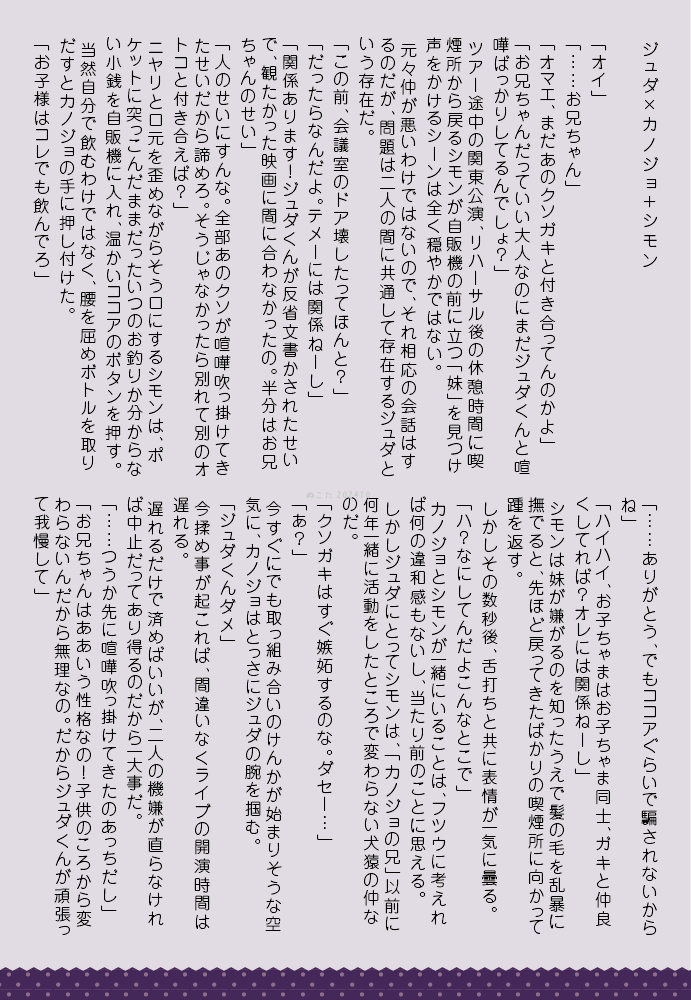 ジュダ×カノジョ+シモン
「オイ」
「……お兄ちゃん」
「オマエ、まだあのクソガキと付き合ってんのかよ」
「お兄ちゃんだっていい大人なのにまだジュダくんと喧
嘩ばっかりしてるんでしょ？」
ツアー途中の関東公演、リハーサル後の休憩時間に喫
煙所から戻るシモンが自販機の前に立つ「妹」を見つけ
声をかけるシーンは全く穏やかではない。
元々仲が悪いわけではないので、それ相応の会話はす
るのだが、問題は二人の間に共通して存在するジュダと
いう存在だ。
「この前、会議室のドア壊したってほんと？」
「だったらなんだよ。テメーには関係ねーし」
「関係あります！ジュダくんが反省文書かされたせい
で、観たかった映画に間に合わなかったの。半分はお兄
ちゃんのせい」
「人のせいにすんな。全部あのクソが喧嘩吹っ掛けてき
たせいだから諦めろ。そうじゃなかったら別れて別のオ
トコと付き合えば？」
ニヤリと口元を歪めながらそう口にするシモンは、ポ
ケットに突っこんだままだったいつのお釣りか分からな
い小銭を自販機に入れ、温かいココアのボタンを押す。
当然自分で飲むわけではなく、腰を屈めボトルを取り
だすとカノジョの手に押し付けた。
「お子様はコレでも飲んでろ」
「……ありがとう、でもココアぐらいで騙されないから
ね」
「ハイハイ、お子ちゃまはお子ちゃま同士、ガキと仲良
くしてれば？オレには関係ねーし」
シモンは妹が嫌がるのを知ったうえで髪の毛を乱暴に
撫でると、先ほど戻ってきたばかりの喫煙所に向かって
踵を返す。
しかしその数秒後、舌打ちと共に表情が一気に曇る。
「ハ？なにしてんだよこんなとこで」
カノジョとシモンが一緒にいることは、フツウに考えれ
ば何の違和感もないし、当たり前のことに思える。
しかしジュダにとってシモンは、「カノジョの兄」以前に
何年一緒に活動をしたところで変わらない犬猿の仲な
のだ。
「クソガキはすぐ嫉妬するのな。ダセー…」
「あ？」
今すぐにでも取っ組み合いのけんかが始まりそうな空
気に、カノジョはとっさにジュダの腕を掴む。
「ジュダくんダメ」
今揉め事が起これば、間違いなくライブの開演時間は
遅れる。
遅れるだけで済めばいいが、二人の機嫌が直らなけれ
ば中止だってあり得るのだから一大事だ。
「……つうか先に喧嘩吹っ掛けてきたのあっちだし」
「お兄ちゃんはああいう性格なの！子供のころから変
わらないんだから無理なの。だからジュダくんが頑張っ
て我慢して」